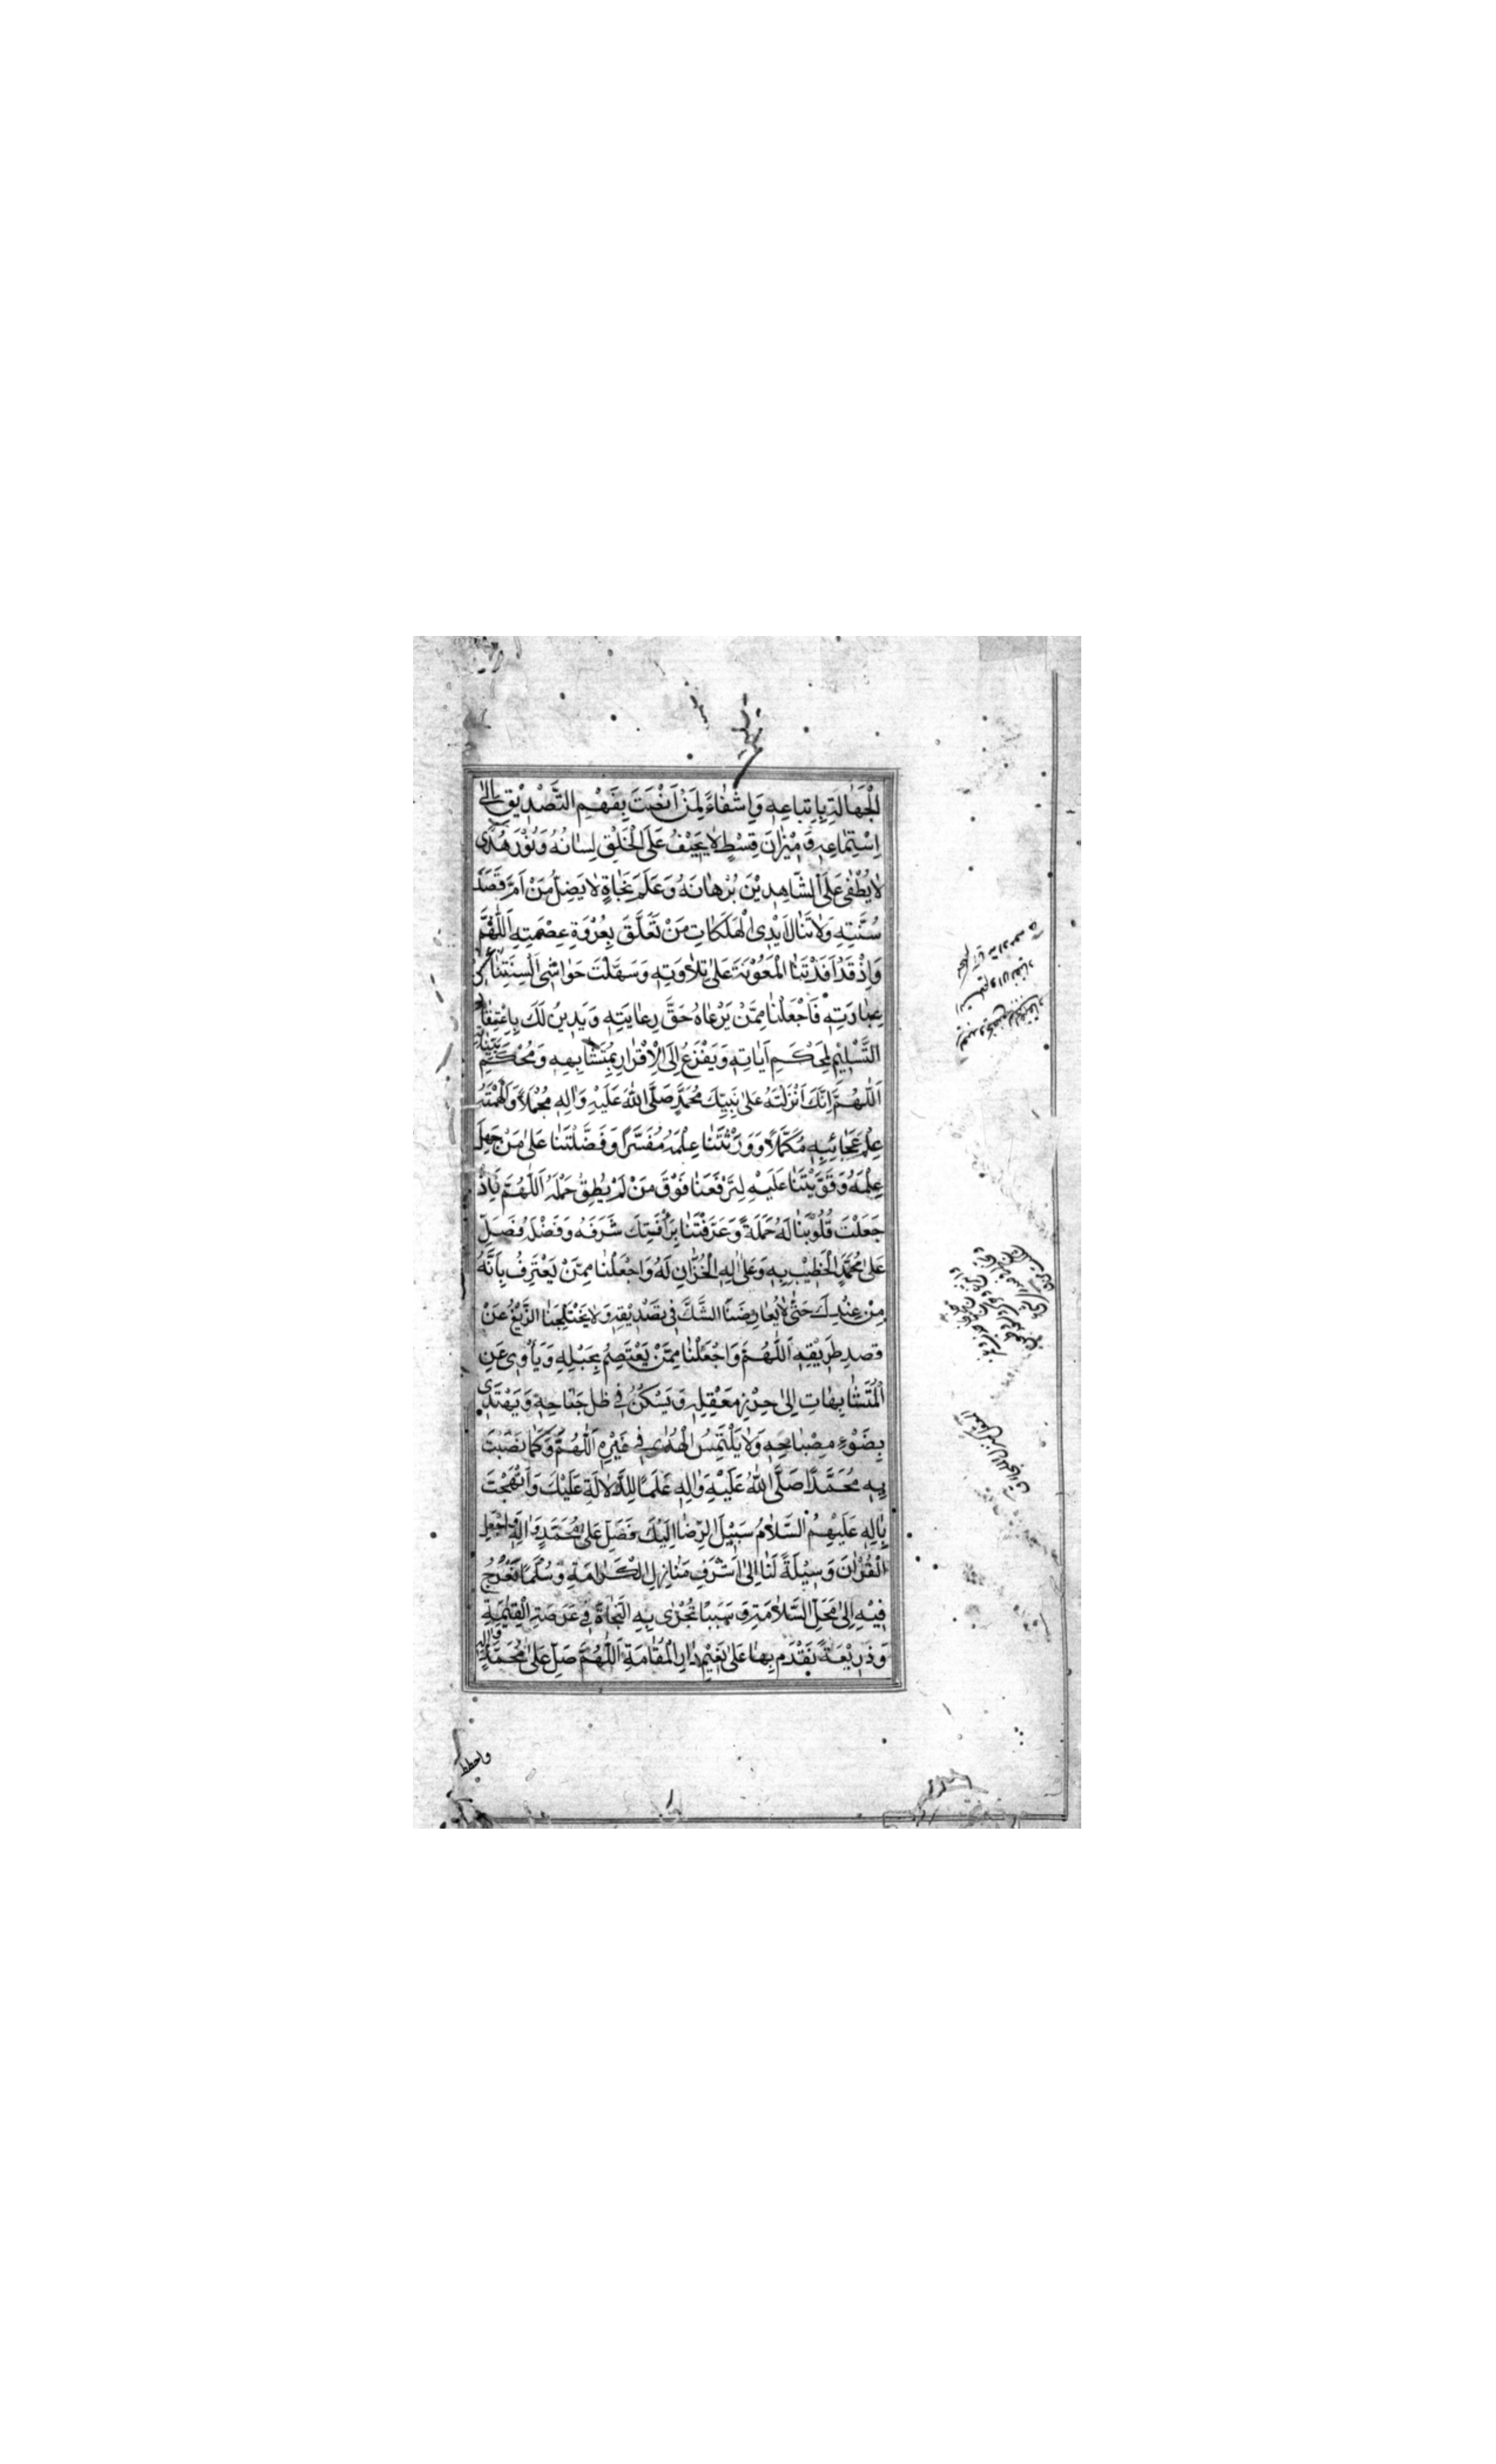 الْجَهَالَةِ بِاِتِّبَاعِهِ وَ اشِفَاءً لِمَنْ اَنْصَتَ بِفَهْمِ التَّصْدِيْقِ اِلَى
اِسْتِمَاعِهِ وَ مِيْزَانَ قِسْطٍ لَا يَحِيْفُ عَلَى الْخَلْقِ لِسَانُهُ وَ نُوْرَ هُدًى
لَا يُطْفٰى عَلَى الشَّاهِدِيْنَ بُرْهَانَهُ وَ عَلَمَ نَجَاةٍ لَا يَضِلُّ مَنْ اَمَّ قَصْدَ
سُنَّتِهِ وَلَا تَنَالُ اَيْدِى الْهَلَكَاتِ مَنْ تَعَلَّقَ بِعُرْوَةِ عِصْمَتِهِ اَللّٰهُمَّ
وَ اِذْ قَدْ اَفَدْتَنَا الْمَعُوْنَةَ عَلَى تِلَاوَتِهِ وَ سَهَّلْتَ حَوَاشِىَ اَلْسِنَتِنَا
عِبَادَتِهِ فَاجْعَلْنَا مِمَّنْ يَرْعَاهُ حَقَّ رِعَايَتِهِ وَ يَدِيْنُ لَكَ بِاعْتِقَادِ
التَّسْلِيْمِ لِمُحْكَمِ اٰيَاتِهِ وَ يَفْزَعُ اِلَى الْاِقْرَارِ بِمُتَشَابِهِهِ وَ مُحْكَمِ بَيِّنَاتِهِ
اَللّٰهُمَّ اِنَّكَ اَنْزَلْتَهُ عَلَى نَبِيِّكَ مُحَمَّدٍ صَلَّى اللّٰهُ عَلَيْهِ وَ اٰلِهِ مُجْمَلًا وَ اَلْهَمْتَهُ
عِلْمَ عَجَائِبِهِ مُكَمَّلًا وَ وَرَّثْتَنَا عِلْمَهُ مُفَسَّرًا وَ فَضَّلْتَنَا عَلَى مَنْ جَهِلَ
عِلْمَهُ وَ قَوَّيْتَنَا عَلَيْهِ لِتَرْفَعَنَا فَوْقَ مَنْ لَمْ يُطِقْ حَمْلَهُ اَللّٰهُمَّ فَاِذْ
جَعَلْتَ قُلُوْبَنَا لَهُ حَمَلَةً وَ عَرَّفْتَنَا بِرَاْفَتِكَ شَرَفَهُ وَ فَضْلَهُ فَصَلِّ
عَلَى مُحَمَّدٍ الْخَطِيْبِ بِهِ وَ عَلَى اٰلِهِ الْخُزَّانِ لَهُ وَ اجْعَلْنَا مِمَّنْ يَعْتَرِفُ بِاَنَّهُ
مِنْ عِنْدِكَ حَتّٰى لَا يُعَارِضَنَا الشَّكُّ فِى تَصْدِيْقِهِ وَ لَا يَخْتَلِجَنَا الزَّيْغُ عَنْ
قَصْدِ طَرِيْقِهِ اَللّٰهُمَّ وَ اجْعَلْنَا مِمَّنْ يَعْتَصِمُ بِحَبْلِهِ وَ يَاْوِى عَنِ
الْمُتَشَابِهَاتِ اِلَى حِرْزِ مَعْقِلِهِ وَ يَسْكُنُ فِى ظِلِّ جَنَاحِهِ وَ يَهْتَدِى
بِضَوْءِ مِصْبَاحِهِ وَ لَا يَلْتَمِسُ الْهُدٰى فِى غَيْرِهِ اَللّٰهُمَّ وَ كَمَا نَصَبْتَ
بِهِ مُحَمَّدًا صَلَّى اللّٰهُ عَلَيْهِ وَ اٰلِهِ عَلَمًا لِلدَّلَالَةِ عَلَيْكَ وَ اَنْهَجْتَ
بِاٰلِهِ عَلَيْهِمُ السَّلَامُ سَبِيْلَ الرِّضَا اِلَيْكَ فَصَلِّ عَلَى مُحَمَّدٍ وَ اٰلِهِ وَ اجْعَلِ
الْقُرْاٰنَ وَسِيْلَةً لَنَا اِلَى اَشْرَفِ مَنَازِلِ الْكَرَامَةِ وَ سُلَّمًا نَعْرُجُ
فِيْهِ اِلَى مَحَلِّ السَّلَامَةِ وَ سَبَبًا نُجْزٰى بِهِ النَّجَاةَ فِى عَرْصَةِ الْقِيٰمَةِ
وَ ذَرِيْعَةً نَقْدَمُ بِهَا عَلَى نَعِيْمِ دَارِ الْمُقَامَةِ اَللّٰهُمَّ صَلِّ عَلَى مُحَمَّدٍ وَ اٰلِهِ
واحطط